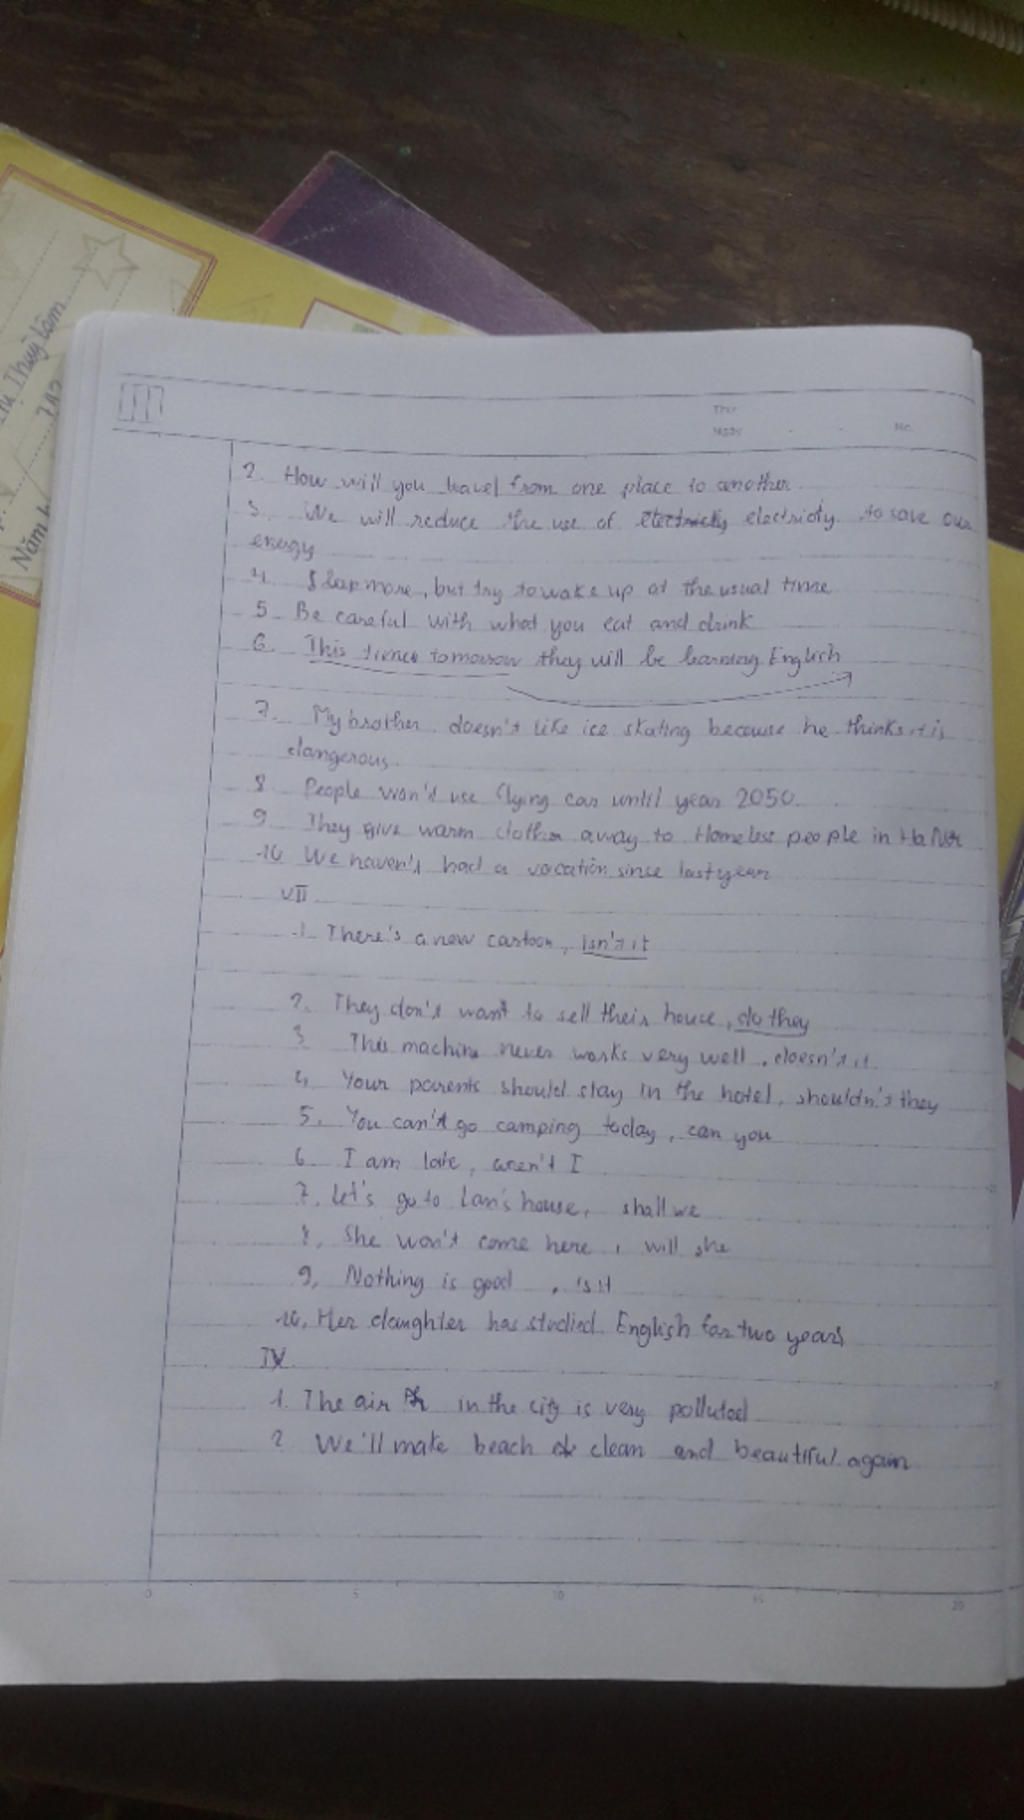 Thị Thùy Lâm
7A2
Năm h
Thứ
Ngày
No.
2. How will you travel from one place to another.
3. We will reduce the use of electricity electricity to save our
energy
4. Sleep more, but try to wake up at the usual time
5. Be careful with what you eat and drink
6. This time tomorrow they will be learning English
7. My brother doesn't like ice skating because he thinks it is
dangerous.
8. People won't use flying car until year 2050.
9. They give warm clothes away to Homeless people in Ha Noi
10. We haven't had a vacation since last year
VII
1. There's a new cartoon, isn't it
2. They don't want to sell their house, do they
3. This machine never works very well, doesn't it
4. Your parents should stay in the hotel, shouldn't they
5. You can't go camping today, can you
6. I am late, aren't I
7. Let's go to Lan's house, shall we
8. She won't come here, will she
9, Nothing is good, is it
10. Her daughter has studied English for two years
IV
1. The air in the city is very polluted
2. We'll make beach clean and beautiful again
0 5 10 15 20